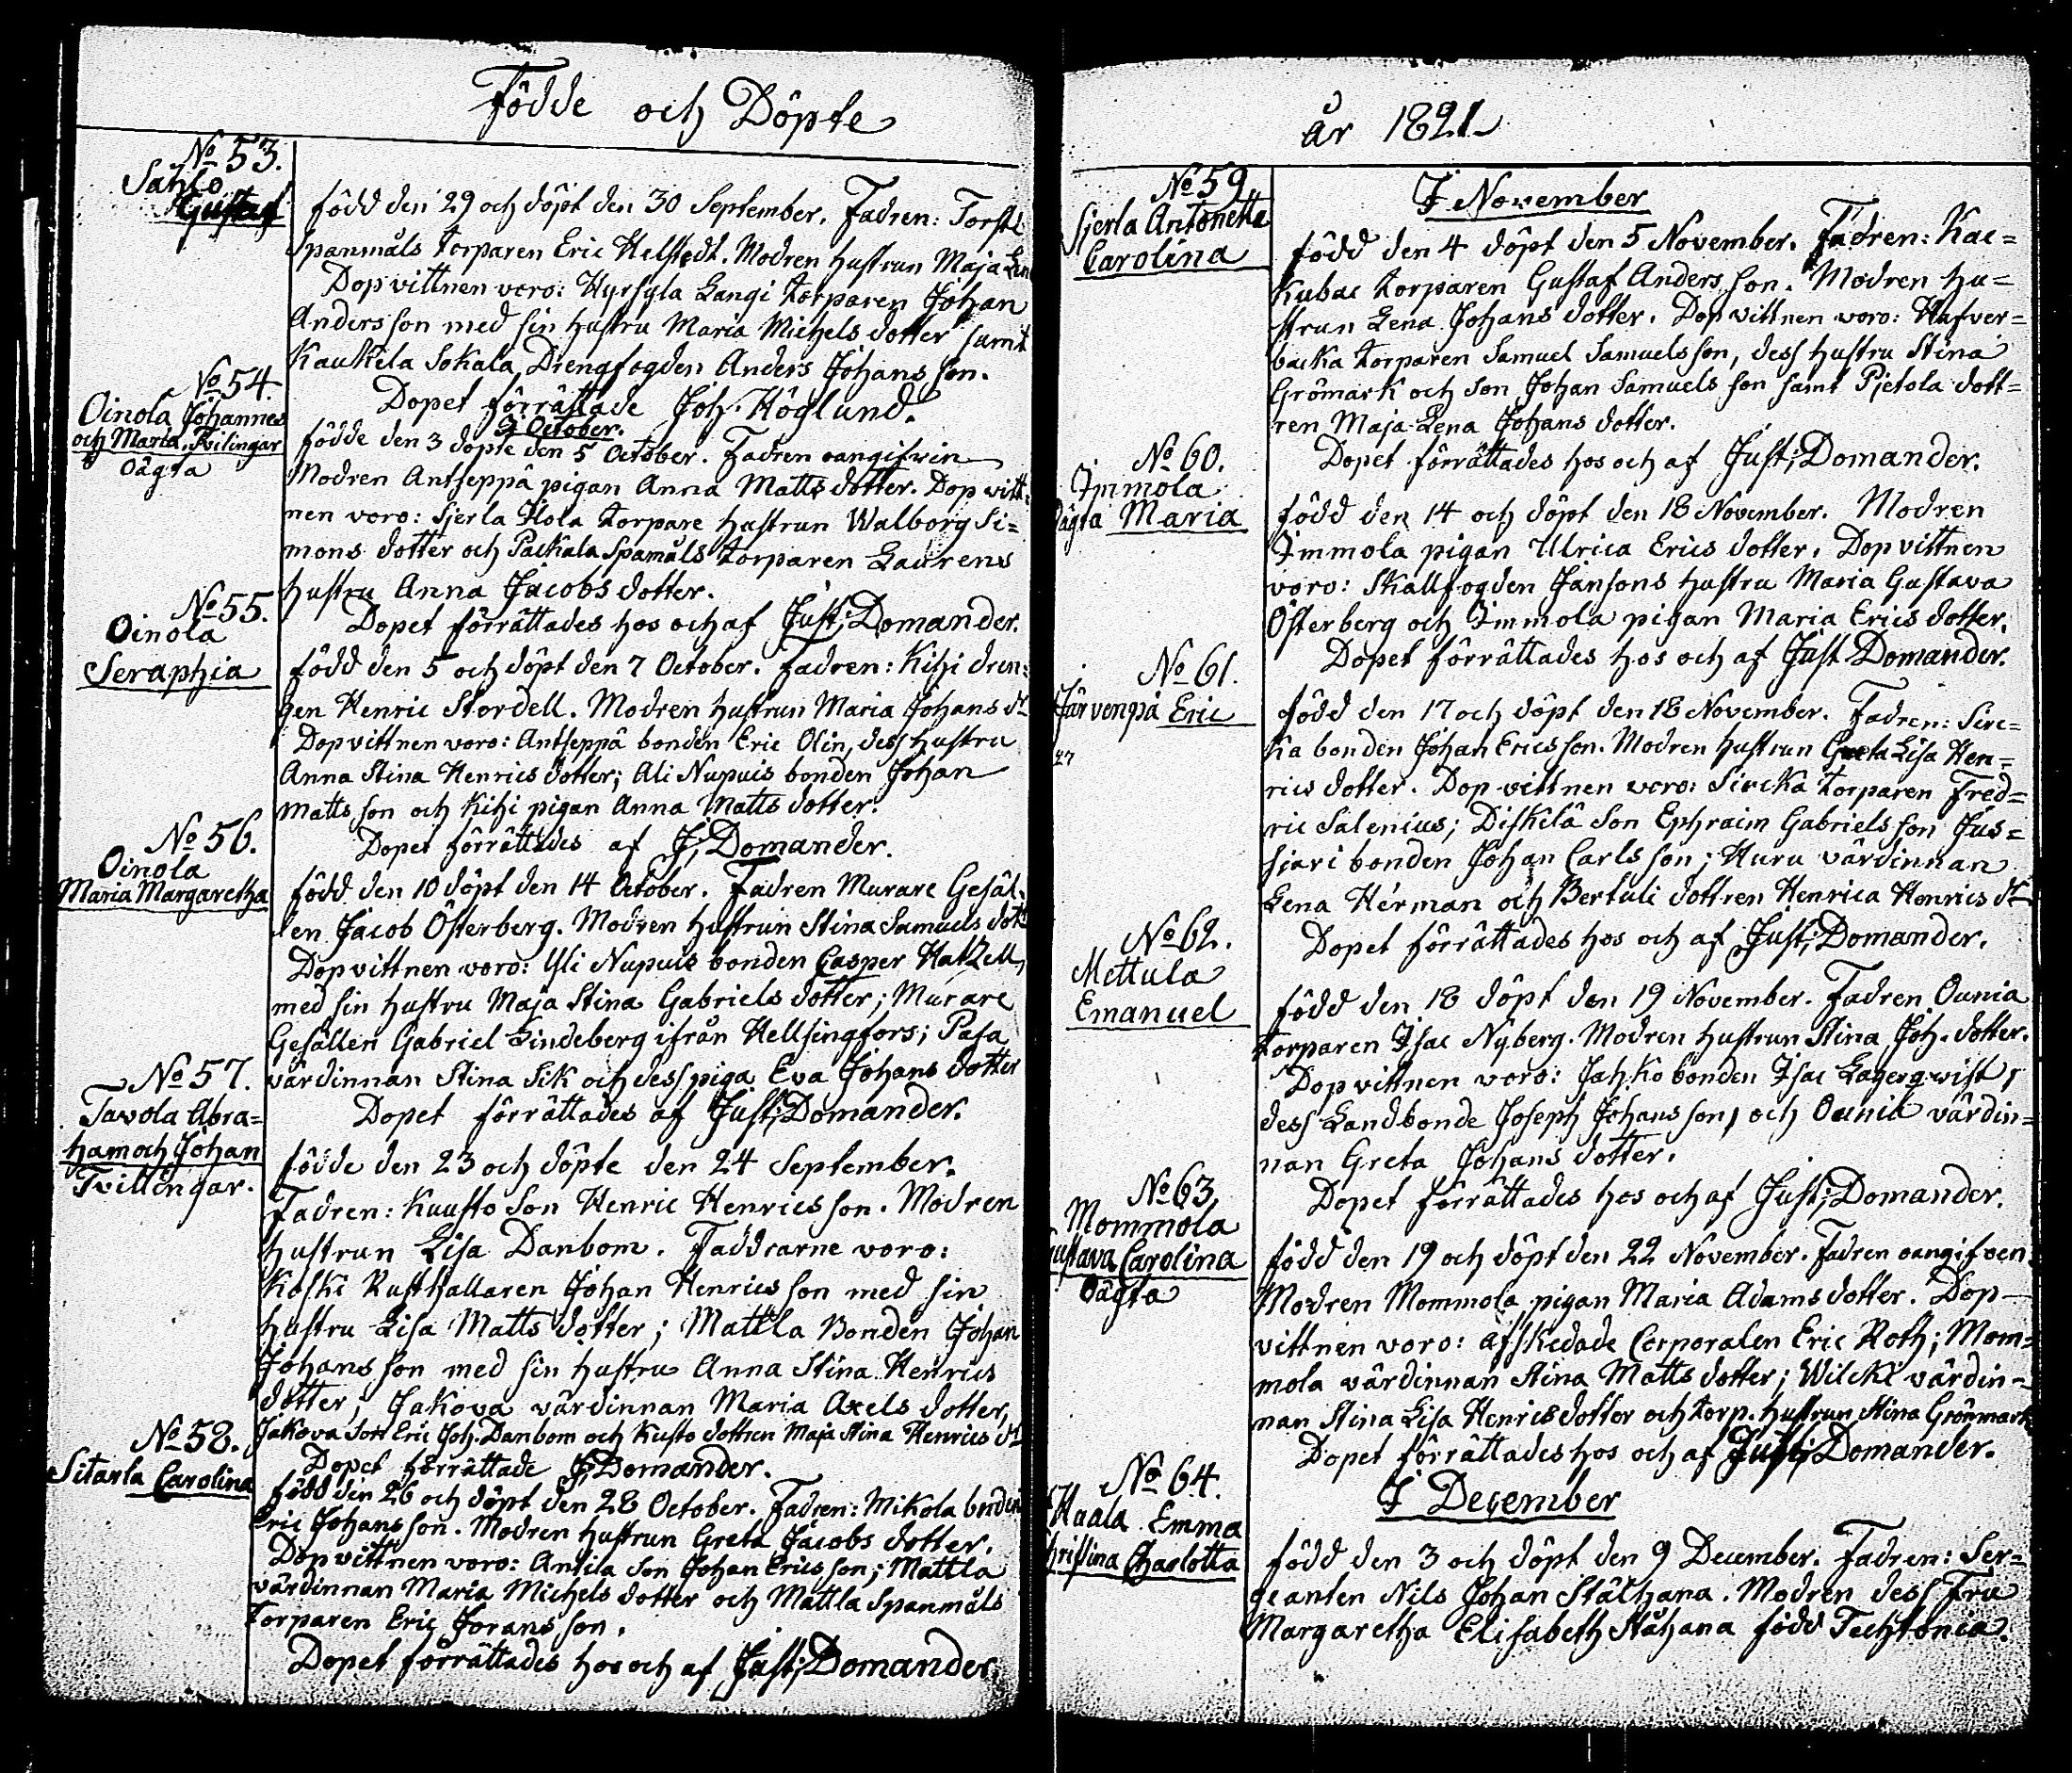 Födde och Döpte
No 53.
Sahlo
Gustaf
född den 29 och döpt den 30 September. Fadren: Torstl
Spanmåls torparen Eric Helstedt. Modren hustrun Maja Len
Dopvittnen voro: Hyrsyla Langi torparen Johan
Andersson med sin hustru Maria Michels dotter samt
Kaukela Sokala Drengfogden Anders Johans son.
Dopet förrättade Joh. Höglund.
No 54.
Oinola Johannes
och Maria. Tvilingar
Oägta
I October.
födde den 3 döpte den 5 October. Fadren oangifwin
Modren Antseppä pigan Anna Matts dotter. Dop vitt=
nen voro: Sjerla Hola torpare hustrun Walborg Si=
mons dotter och Packala Spamåls torparen Laurens
hustru Anna Jacobs dotter.
Dopet förrättades hos och af Just; Domander.
No 55.
Oinola
Seraphia
född den 5 och döpt den 7 October. Fadren: Kihi dren=
gen Henric Stordell. Modren hustrun Maria Johans dr
Dopvittnen voro: Antseppä bonden Eric Olin, dess hustru
Anna Stina Henrics dotter; Ali Nupuis bonden Johan
Matts son och Kihi pigan Anna Matts dotter.
Dopet förrättades af J; Domander.
No 56.
Oinola
Maria Margaretha
född den 10 döpt den 14 October. Fadren Murare Gesäl=
len Jacob Österberg. Modren hustrun Stina Samuels dotr
Dopvittnen voro: Yli Nupuis bonden Casper Hatzell,
med sin hustru Maja Stina Gabriels dotter; Murare
Gesällen Gabriel Lindeberg ifrån Hellsingfors; Pasa
värdinnan Stina Sik och dess piga Eva Johans dotter
Dopet förrättades af Just; Domander.
No 57.
Tavola Abra=
ham och Johan
Tvillingar.
födde den 23 och döpte den 24 September.
Fadren: Kuusto Son Henric Henrics son. Modren
hustrun Lisa Danbom. Faddrarne voro:
Koski Rusthallaren Johan Henrics son med sin
hustru Lisa Matts dotter; Mattla Bonden Johan
Johans son med sin hustru Anna Stina Henrics
dotter; Jakova värdinnan Maria Axels dotter,
Jakova Son Eric Joh. Danbom och Kusto dottren Maja Stina Henrics dr
Dopet förrättade J; Domander.
No 58.
Sitarla Carolina
född den 26 och döpt den 28 October. Fadren: Mikola bonden
Eric Johans son. Modren hustrun Greta Jacobs dotter.
Dopvittnen voro: Antila Son Johan Ericsson; Mattla
värdinnan Maria Michels dotter och Mattla Spanmåls
torparen Eric Jorans son.
Dopet förrättades hos och af Just; Domander.
år 1821
No 59
Sjerla Antonetta
Carolina
I November
född den 4 döpt den 5 November. Fadren: Kac=
kubac torparen Gustaf Anders son. Modren hu=
strun Lena Johans dotter. Dopvittnen voro: Hafver=
backa torparen Samuel Samuelsson, dess hustru Stina
Grömark och son Johan Samuels son samt Pietola dott=
ren Maja Lena Johans dotter.
Dopet förrättades hos och af Just; Domander.
No 60.
Immola
Oägta Maria
född den 14 och döpt den 18 November. Modren
Immola pigan Ulrica Erics dotter. Dopvittnen
voro: Skallfogden Jansons hustru Maria Gustava
Österberg och Immola pigan Maria Erics dotter.
Dopet förrättades hos och af Just Domander.
No 61.
Järvenpä Eric
27
född den 17 och döpt den 18 November. Fadren: Sirc=
ka bonden Johan Ericsson. Modren hustrun Greta Lisa Hen=
rics dotter. Dop vittnen voro: Sircka torparen Fred=
ric Salenius; Diskilä Son Ephraim Gabriels son Jus=
sjari bonden Johan Carls son; Huru värdinnan
Lena Herman och Bertuli dottren Henrica Henrics dr
Dopet förrättades hos och af Just; Domander.
No 62.
Mettula
Emanuel
född den 18 döpt den 19 November. Fadren Ounia
torparen Isac Nyberg. Modren hustrun Stina Joh. dotter.
Dopvittnen voro: Jahko bonden Isac Lagerqwist,
dess Landbonde Joseph Johans son, och Ounik värdin=
nan Greta Johans dotter.
Dopet förrättades hos och af Just; Domander.
No 63.
Mommola
Gustava Carolina
Oägta
född den 19 och döpt den 22 November. Fadren oangifven
Modren Mommola pigan Maria Adams dotter. Dop
vittnen voro: afskedade Corporalen Eric Roth; Mom=
mola värdinnan Stina Matts dotter; Wilcki värdin=
nan Stina Lisa Henrics dotter och torp. hustrun Stina Grönmark
Dopet förrättades hos och af Just; Domander.
No 64.
Huala Emma
Christina Charlotta
I December
född den 3 och döpt den 9 December. Fadren: Ser=
geanten Nils Johan Stålhana. Modren dess Fru
Margaretha Elisabeth Ståhana född Techtonia.